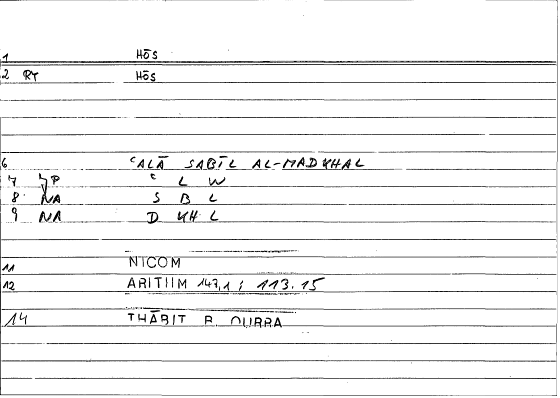 1 HŌS
2 RT HŌS
6 ʿALĀ SABĪL AL-MADKHAL
7 JP ʿ L W
8 NA S B L
9 NA D KH L
11 NICOM
12 ARITIIM 147,1 ; 113.15
14 THĀBIT B. QURRA